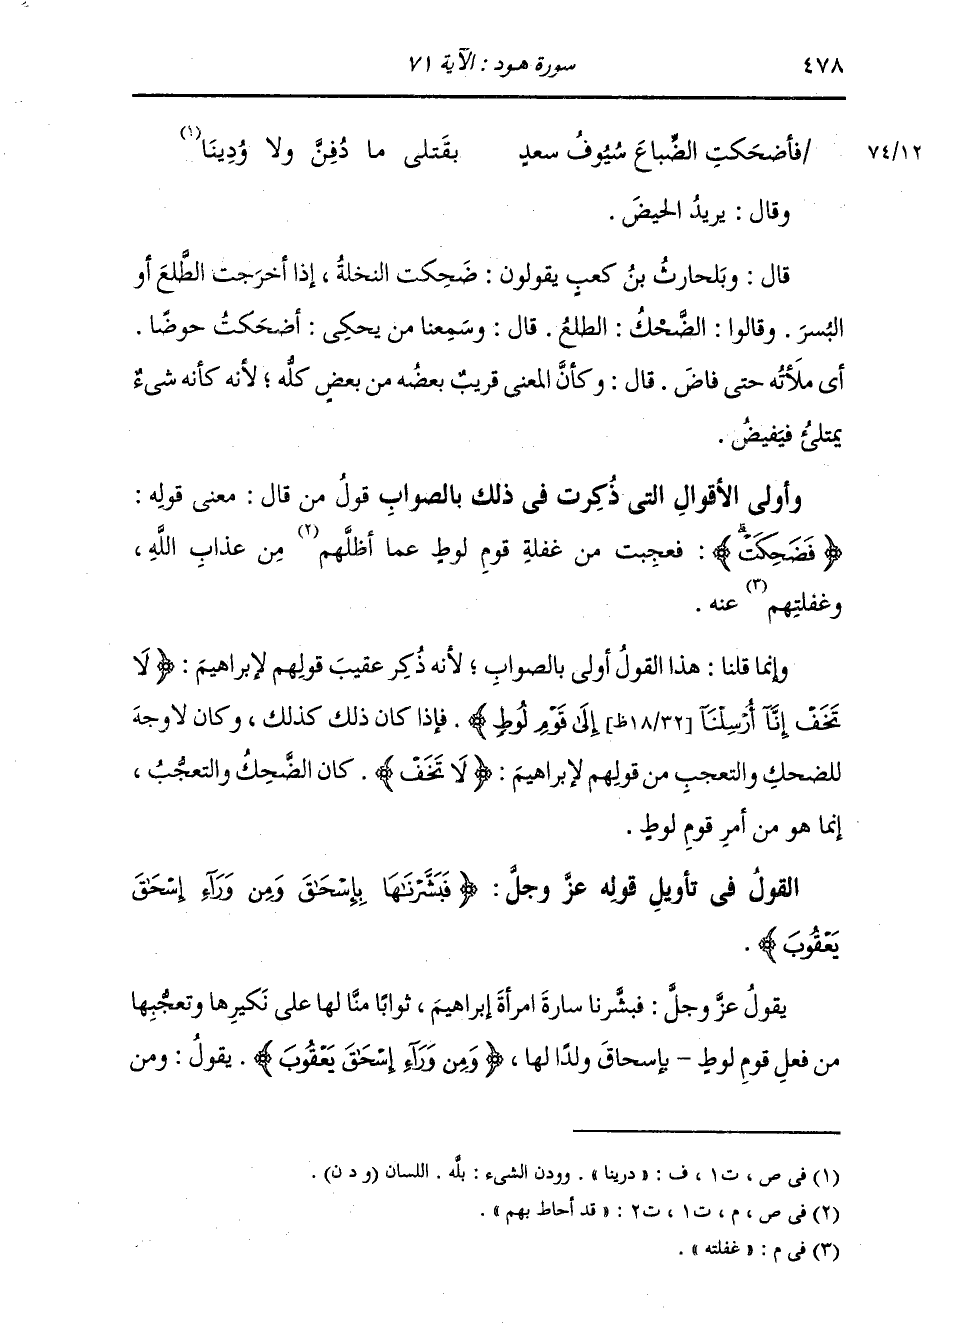 ٤٧٨ سورة هود : الآية ٧١
٧٤/١٢ /فأضحَكتِ الضِّباعَ سُيُوفُ سعدٍ بقَتلى ما دُفِنَّ ولا وُدِينَا(١)
وقال : يريدُ الحيضَ .
قال : وبَلحارثُ بنُ كعبٍ يقولون : ضَحِكت النخلةُ ، إذا أخرَجت الطَّلعَ أو
البُسرَ . وقالوا : الضَّحْكُ : الطلعُ . قال : وسَمِعنا من يحكِى : أضحَكتُ حوضًا .
أى ملَأتُه حتى فاضَ . قال : وكأنَّ المعنى قريبٌ بعضُه من بعضٍ كلُّه ؛ لأنه كأنه شىءٌ
يمتلئُ فيَفيضُ .
وأولى الأقوالِ التى ذُكِرت فى ذلك بالصوابِ قولُ من قال : معنى قولِه :
﴿ فَضَحِكَتْ ﴾ : فعجِبت من غفلةِ قومِ لوطٍ عما أظلَّهم(٢) مِن عذابِ اللَّهِ ،
وغفلتِهم(٣) عنه .
وإنما قلنا : هذا القولُ أولى بالصوابِ ؛ لأنه ذُكِر عقيبَ قولِهم لإبراهيمَ : ﴿ لَا
تَخَفْ إِنَّآ أُرْسِلْنَآ [١٨/٣٢ظ] إِلَىٰ قَوْمِ لُوطٍ ﴾ . فإذا كان ذلك كذلك ، وكان لا وجهَ
للضحكِ والتعجبِ من قولِهم لإبراهيمَ : ﴿ لَا تَخَفْ ﴾ . كان الضَّحِكُ والتعجُّبُ ،
إنما هو من أمرِ قومِ لوطٍ .
القولُ فى تأويلِ قولِه عزَّ وجلَّ : ﴿ فَبَشَّرْنَٰهَا بِإِسْحَٰقَ وَمِن وَرَآءِ إِسْحَٰقَ
يَعْقُوبَ ﴾ .
يقولُ عزَّ وجلَّ : فبشَّرنا سارةَ امرأةَ إبراهيمَ ، ثوابًا منَّا لها على نَكيرِها وتعجُّبِها
من فعلِ قومِ لوطٍ – بإسحاقَ ولدًا لها ، ﴿ وَمِن وَرَآءِ إِسْحَٰقَ يَعْقُوبَ ﴾ . يقولُ : ومن
(١) فى ص ، ت١ ، ف : « درينا » . وودن الشىء : بلَّه . اللسان (و د ن) .
(٢) فى ص ، م ، ت١ ، ت٢ : « قد أحاط بهم » .
(٣) فى م : « غفلته » .